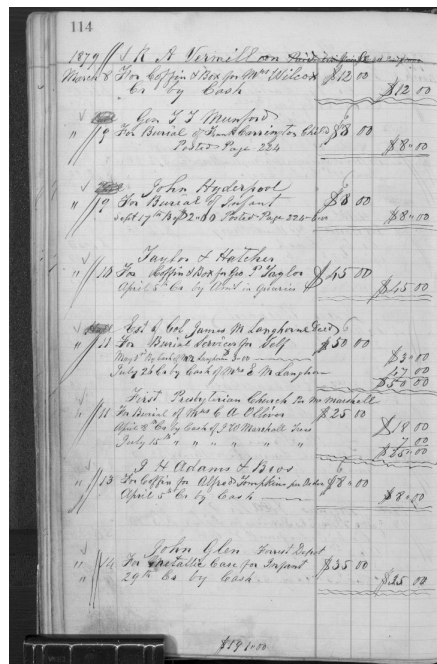 114
1879 // S R A Vermillon
March 8 For Coffin & Box for Mrs Wilcox $12 00
Cr by Cash $12 00
Gen T T Munford
" 9 For Burial of Kent Corrington Child $8 00
Posted Page 224 $8"00
John Hyderpool
" 9 For Burial of Infant $8 00
Sept 17th Posted Page 224 $8"00
Taylor & Hatcher
" 10 For Coffin & Box for Geo P Taylor $45 00
April 5th Cr by $45 00
Est of Col James M Langhorne Decd
" 11 For Burial Services for Self $50 00
May $3 00
July 26 Cr by Cash of Mrs E M Langhorn 47 00
$50 00
First Presbyterian Church Per Mr Marshall
" 11 For Burial of Mrs C A Olliver $25 00
April Cr by Cash of Marshall Tres $18 00
July 15th " " " " " 7 00
$25"00
J H Adams & Bros
" 13 For Coffin for Alfred Tompkins per Order $8 00
April 5th Cr by Cash $8 00
John Glen Forest Depot
" 14 For Metallic Case for Infant $35 00
" 29th Cr by Cash $35 00
$191"00